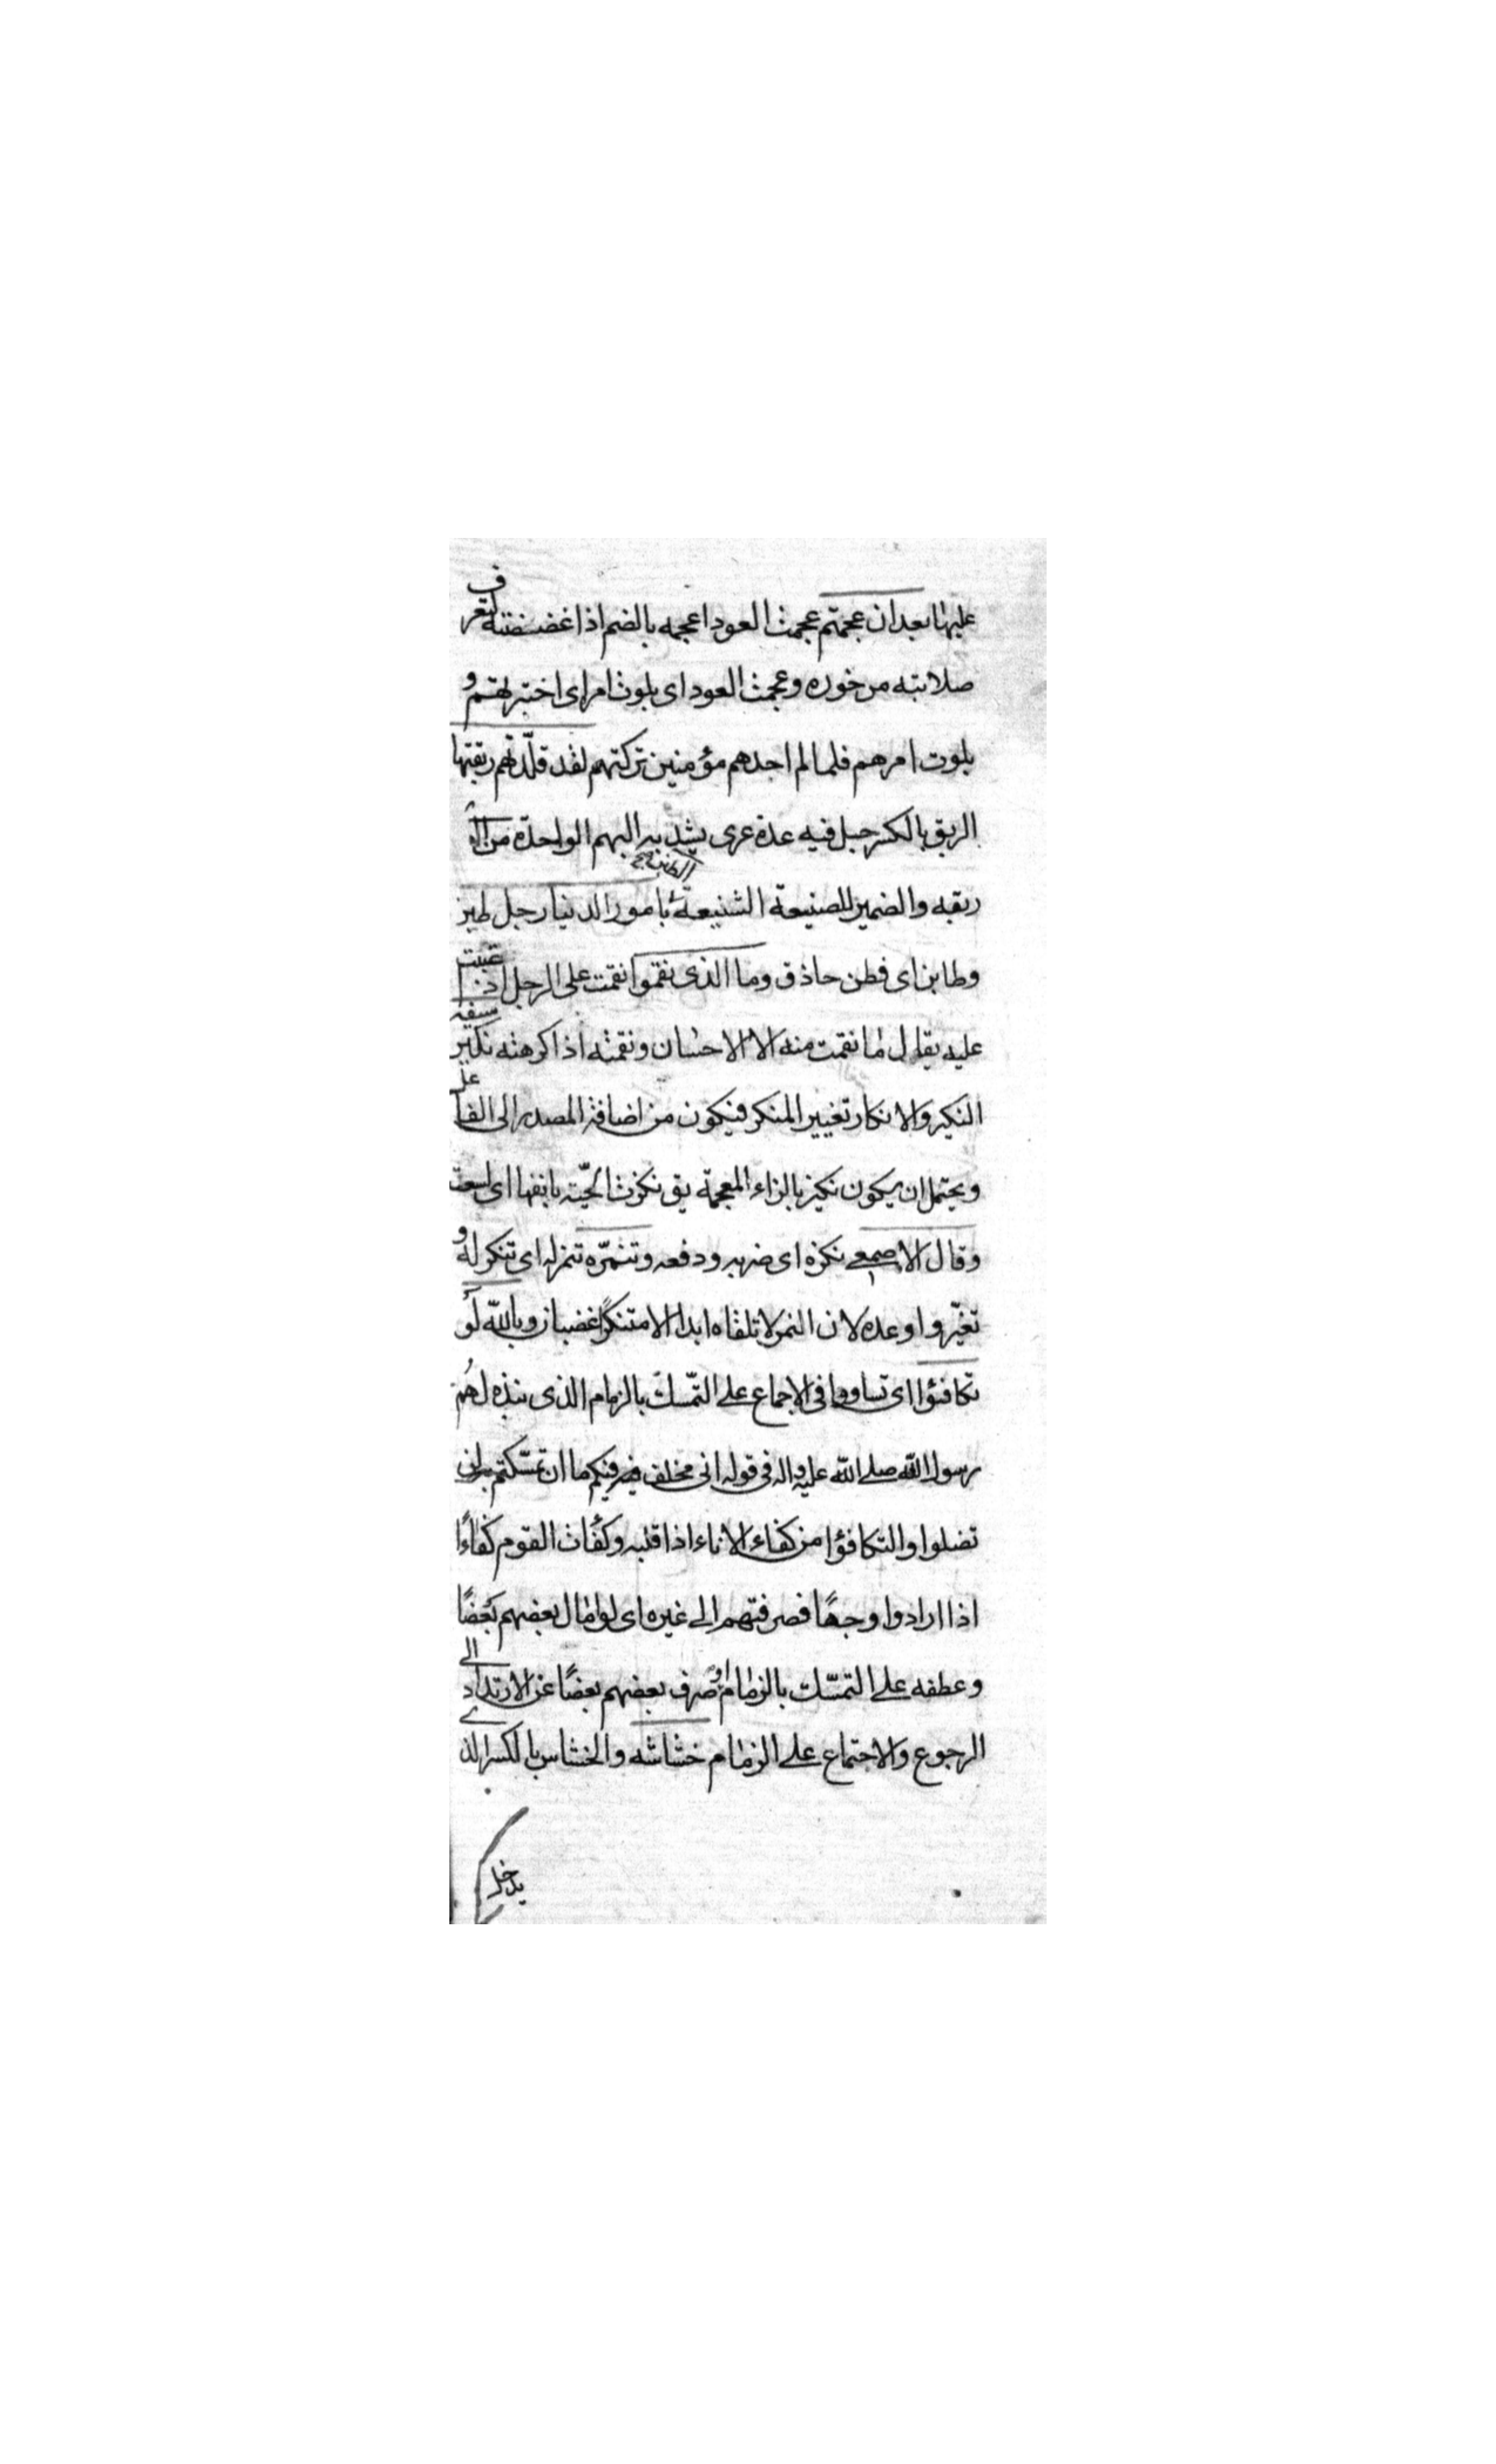 عليها بعد ان عجمتم عجمت العود اعجمه بالضم اذا غضضته لتعرف
صلابته من خوره وعجمت العود اى بلوت امر اى اختبرتهم و
بلوت امرهم فلما لم اجدهم مؤمنين تركتهم لقد قلّدتهم ربقتها
الربق بالكسر حبل فيه عدة عرى يشد به البهم الواحدة من
ربقه والضمير للصنيعة الشنيعة الطابن بامور الدنيا رجل طبن
وطابن اى فطن حاذق وما الذى نقموا نقمت على الرجل اذا عبت
عليه يقال ما نقمت منه الا الاحسان ونقمته اذا كرهته نكير سيفه
النكير والانكار تغيير المنكر فيكون من اضافة المصدر الى الفاعل
ويحتمل ان يكون نكيز بالزاء المعجمة يق نكزت الحيّة بانفها اى لسعت
وقال الاصمعى نكزه اى ضربه ودفعه وتنمّره تنمر له اى تنكر له و
تغيّر واوعده لان النمر لا تلقاه ابدا الا متنكرًا غضبان وبالله لو
تكافئوا اى تساووا فى الاجماع على التمّسك بالزمام الذى نبذه لهم
رسول الله صلى الله عليه واله فى قوله انى مخلف فيكم ما ان تمسّكتم به لن
تضلوا والتكافؤا من كفاء الاناء اذا قلبه وكفأت القوم كفاءًا
اذا ارادوا وجهًا فصرفتهم الى غيره اى لو امال بعضهم بعضًا
وعطفه على التمسّك بالزمام او صرف بعضهم بعضًا عن الارتداد الى
الرجوع والاجتماع على الزمام خشاشه والخشاس بالكسر الذى
يدخل